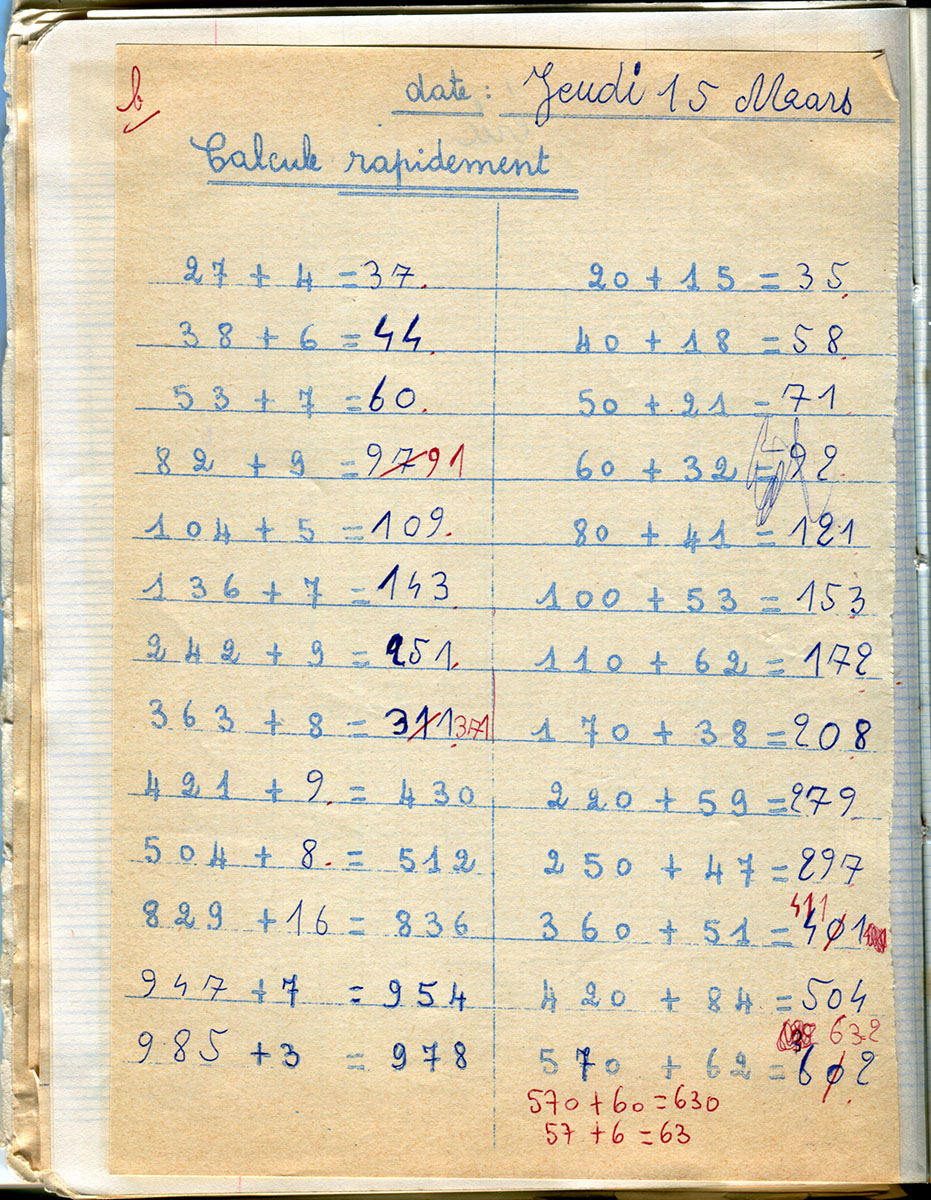 b
date : Jeudi 15 Maars
Calcule rapidement
27 + 4 = 37.
38 + 6 = 44.
53 + 7 = 60.
82 + 9 = 97 91
104 + 5 = 109.
136 + 7 = 143
242 + 9 = 251.
363 + 8 = 311 371
421 + 9. = 430
504 + 8. = 512
829 + 16 = 836
947 + 7 = 954
985 + 3 = 978
20 + 15 = 35.
40 + 18 = 58.
50 + 21 = 71
60 + 32 = 92.
80 + 41 = 121
100 + 53 = 153
110 + 62 = 172
170 + 38 = 208
220 + 59 = 279
250 + 47 = 297
411
360 + 51 = 401
420 + 84 = 504
632
570 + 62 = 602
570 + 60 = 630
57 + 6 = 63